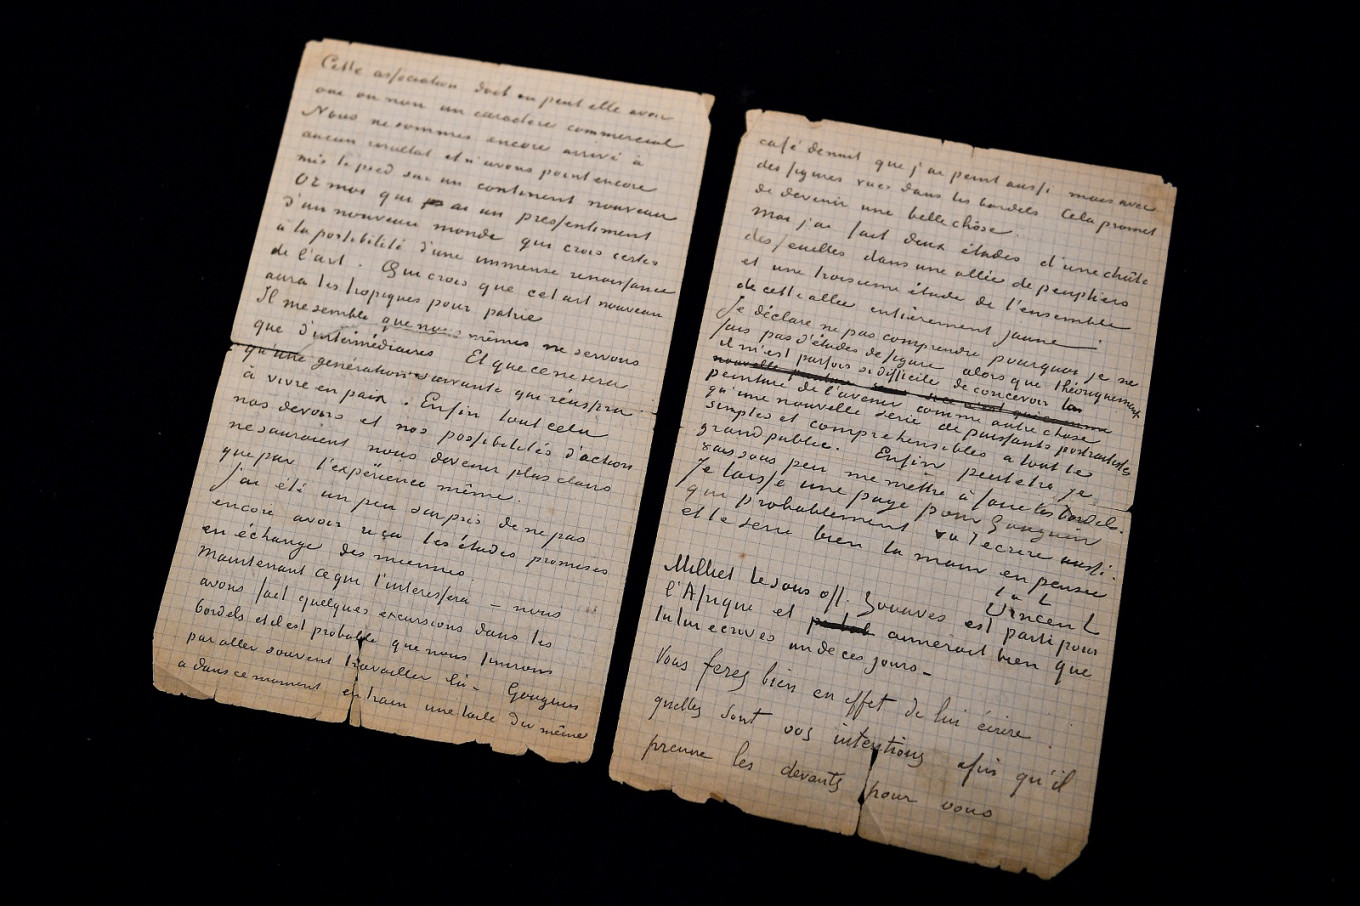 Cette association doit ou peut elle avoir
oui ou non un caractère commercial
Nous ne sommes encore arrivé à
aucun résultat et n'avons point encore
mis le pied sur un continent nouveau
Or moi qui ai un pressentiment
d'un nouveau monde qui crois certes
à la possibilité d'une immense renaissance
de l'art. Qui crois que cet art nouveau
aura les tropiques pour patrie
Il me semble que nous mêmes ne servons
que d'intermédiaires Et que ce ne sera
qu'une génération suivante qui réussira
à vivre en paix. Enfin tout cela
nos devoirs et nos possibilités d'action
ne sauraient nous devenir plus clairs
que par l'expérience même.
J'ai été un peu surpris de ne pas
encore avoir reçu les études promises
en échange des miennes
Maintenant ce qui t'interessera - nous
avons fait quelques excursions dans les
bordels et il est probable que nous finirons
par aller souvent travailler là - Gauguin
a dans ce moment en train une toile du même
café de nuit que j'ai peint aussi mais avec
des figures vues dans les bordels Cela promet
de devenir une belle chôse.
Moi j'ai fait deux études d'une chûte
des feuilles dans une allée de peupliers
et une troisieme étude de l'ensemble
de cette allée entièrement jaune.
Je déclare ne pas comprendre pourquoi je ne
fais pas d'études de figure alors que théoriquement
il m'est parfois si difficile de concevoir la
peinture de l'avenir comme autre chose
qu'une nouvelle série de puissants portraitistes
simples et comprehensibles à tout le
grand public. Enfin peut être je
vais sous peu me mettre à faire les bordels.
Je laisse une page pour Gauguin
qui probablement va t'écrire aussi.
et te serre bien la main en pensée
t. à t.
Vincent
Milliet le sous off. zouaves est parti pour
l'Afrique et aimerait bien que
tu lui écrives un de ces jours -
Vous ferez bien en effet de lui écrire
quelles sont vos intentions afin qu'il
prenne les devants pour vous